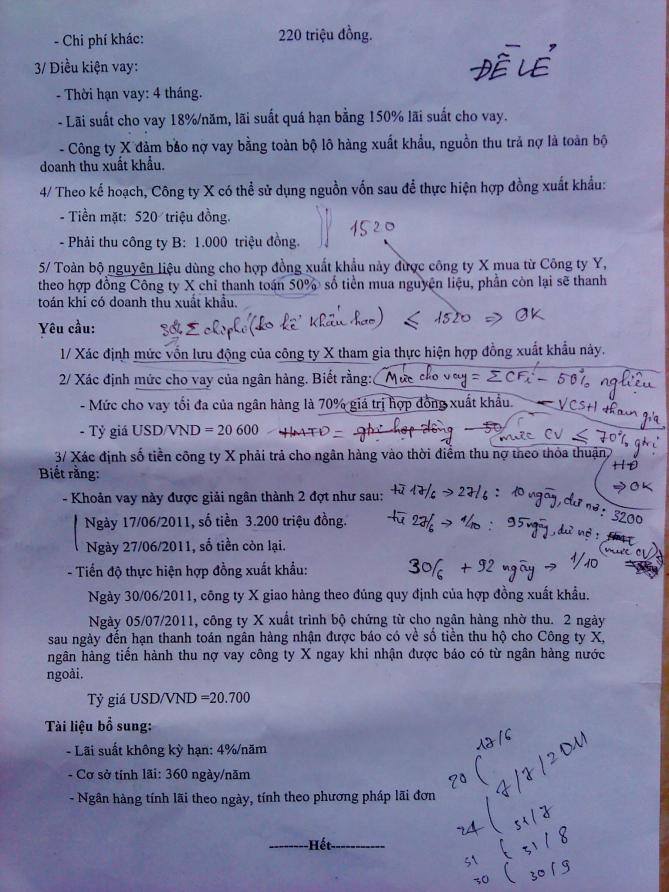 - Chi phí khác: 220 triệu đồng.
ĐỀ LẺ
3/ Điều kiện vay:
- Thời hạn vay: 4 tháng.
- Lãi suất cho vay 18%/năm, lãi suất quá hạn bằng 150% lãi suất cho vay.
- Công ty X đảm bảo nợ vay bằng toàn bộ lô hàng xuất khẩu, nguồn thu trả nợ là toàn bộ
doanh thu xuất khẩu.
4/ Theo kế hoạch, Công ty X có thể sử dụng nguồn vốn sau để thực hiện hợp đồng xuất khẩu:
- Tiền mặt: 520 triệu đồng.
- Phải thu công ty B: 1.000 triệu đồng.
1520
5/ Toàn bộ nguyên liệu dùng cho hợp đồng xuất khẩu này được công ty X mua từ Công ty Y,
theo hợp đồng Công ty X chỉ thanh toán 50% số tiền mua nguyên liệu, phần còn lại sẽ thanh
toán khi có doanh thu xuất khẩu.
Yêu cầu:
30% Σ chi phí (ko kể khấu hao) ≤ 1520 => OK
1/ Xác định mức vốn lưu động của công ty X tham gia thực hiện hợp đồng xuất khẩu này.
2/ Xác định mức cho vay của ngân hàng. Biết rằng:
Mức cho vay = ΣCF - 50% nghiệu
- VCSH tham gia
- Mức cho vay tối đa của ngân hàng là 70% giá trị hợp đồng xuất khẩu.
- Tỷ giá USD/VND = 20 600
HMTD = ghi hợp đồng - 50
mức CV ≤ 70% ghị
HĐ
=> OK
3/ Xác định số tiền công ty X phải trả cho ngân hàng vào thời điểm thu nợ theo thỏa thuận.
Biết rằng:
- Khoản vay này được giải ngân thành 2 đợt như sau:
từ 17/6 → 27/6 : 10 ngày, dư nợ : 3200
Ngày 17/06/2011, số tiền 3.200 triệu đồng.
từ 27/6 → 1/10 : 95 ngày, dư nợ :
(mức CV)
Ngày 27/06/2011, số tiền còn lại.
- Tiến độ thực hiện hợp đồng xuất khẩu:
30/6 + 92 ngày → 1/10
Ngày 30/06/2011, công ty X giao hàng theo đúng quy định của hợp đồng xuất khẩu.
Ngày 05/07/2011, công ty X xuất trình bộ chứng từ cho ngân hàng nhờ thu. 2 ngày
sau ngày đến hạn thanh toán ngân hàng nhận được báo có về số tiền thu hộ cho Công ty X,
ngân hàng tiến hành thu nợ vay công ty X ngay khi nhận được báo có từ ngân hàng nước
ngoài.
Tỷ giá USD/VND =20.700
Tài liệu bổ sung:
- Lãi suất không kỳ hạn: 4%/năm
- Cơ sở tính lãi: 360 ngày/năm
- Ngân hàng tính lãi theo ngày, tính theo phương pháp lãi đơn
17/6
20
24
31/7
31
31/8
30
30/9
--------Hết-----------